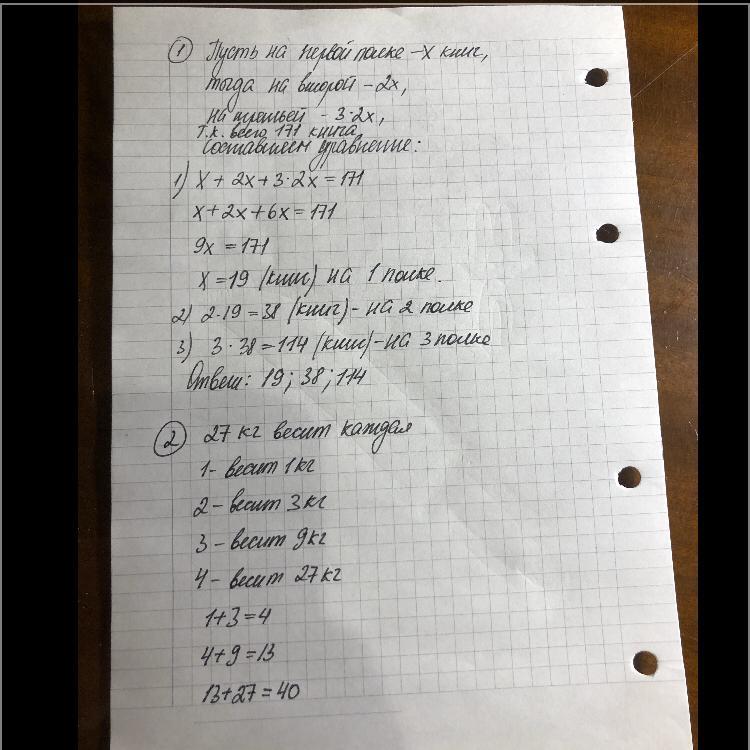 1 Пусть на первой полке - х книг,
тогда на второй - 2х,
на третьей - 3·2х,
т.к. всего 171 книга
Составляем уравнение:
1) х + 2х + 3·2х = 171
х + 2х + 6х = 171
9х = 171
х = 19 (книг) на 1 полке.
2) 2·19 = 38 (книг) - на 2 полке
3) 3·38 = 114 (книг) - на 3 полке
Ответ: 19; 38; 114
2 27 кг весит каждая
1 - весит 1 кг
2 - весит 3 кг
3 - весит 9 кг
4 - весит 27 кг
1+3=4
4+9=13
13+27=40